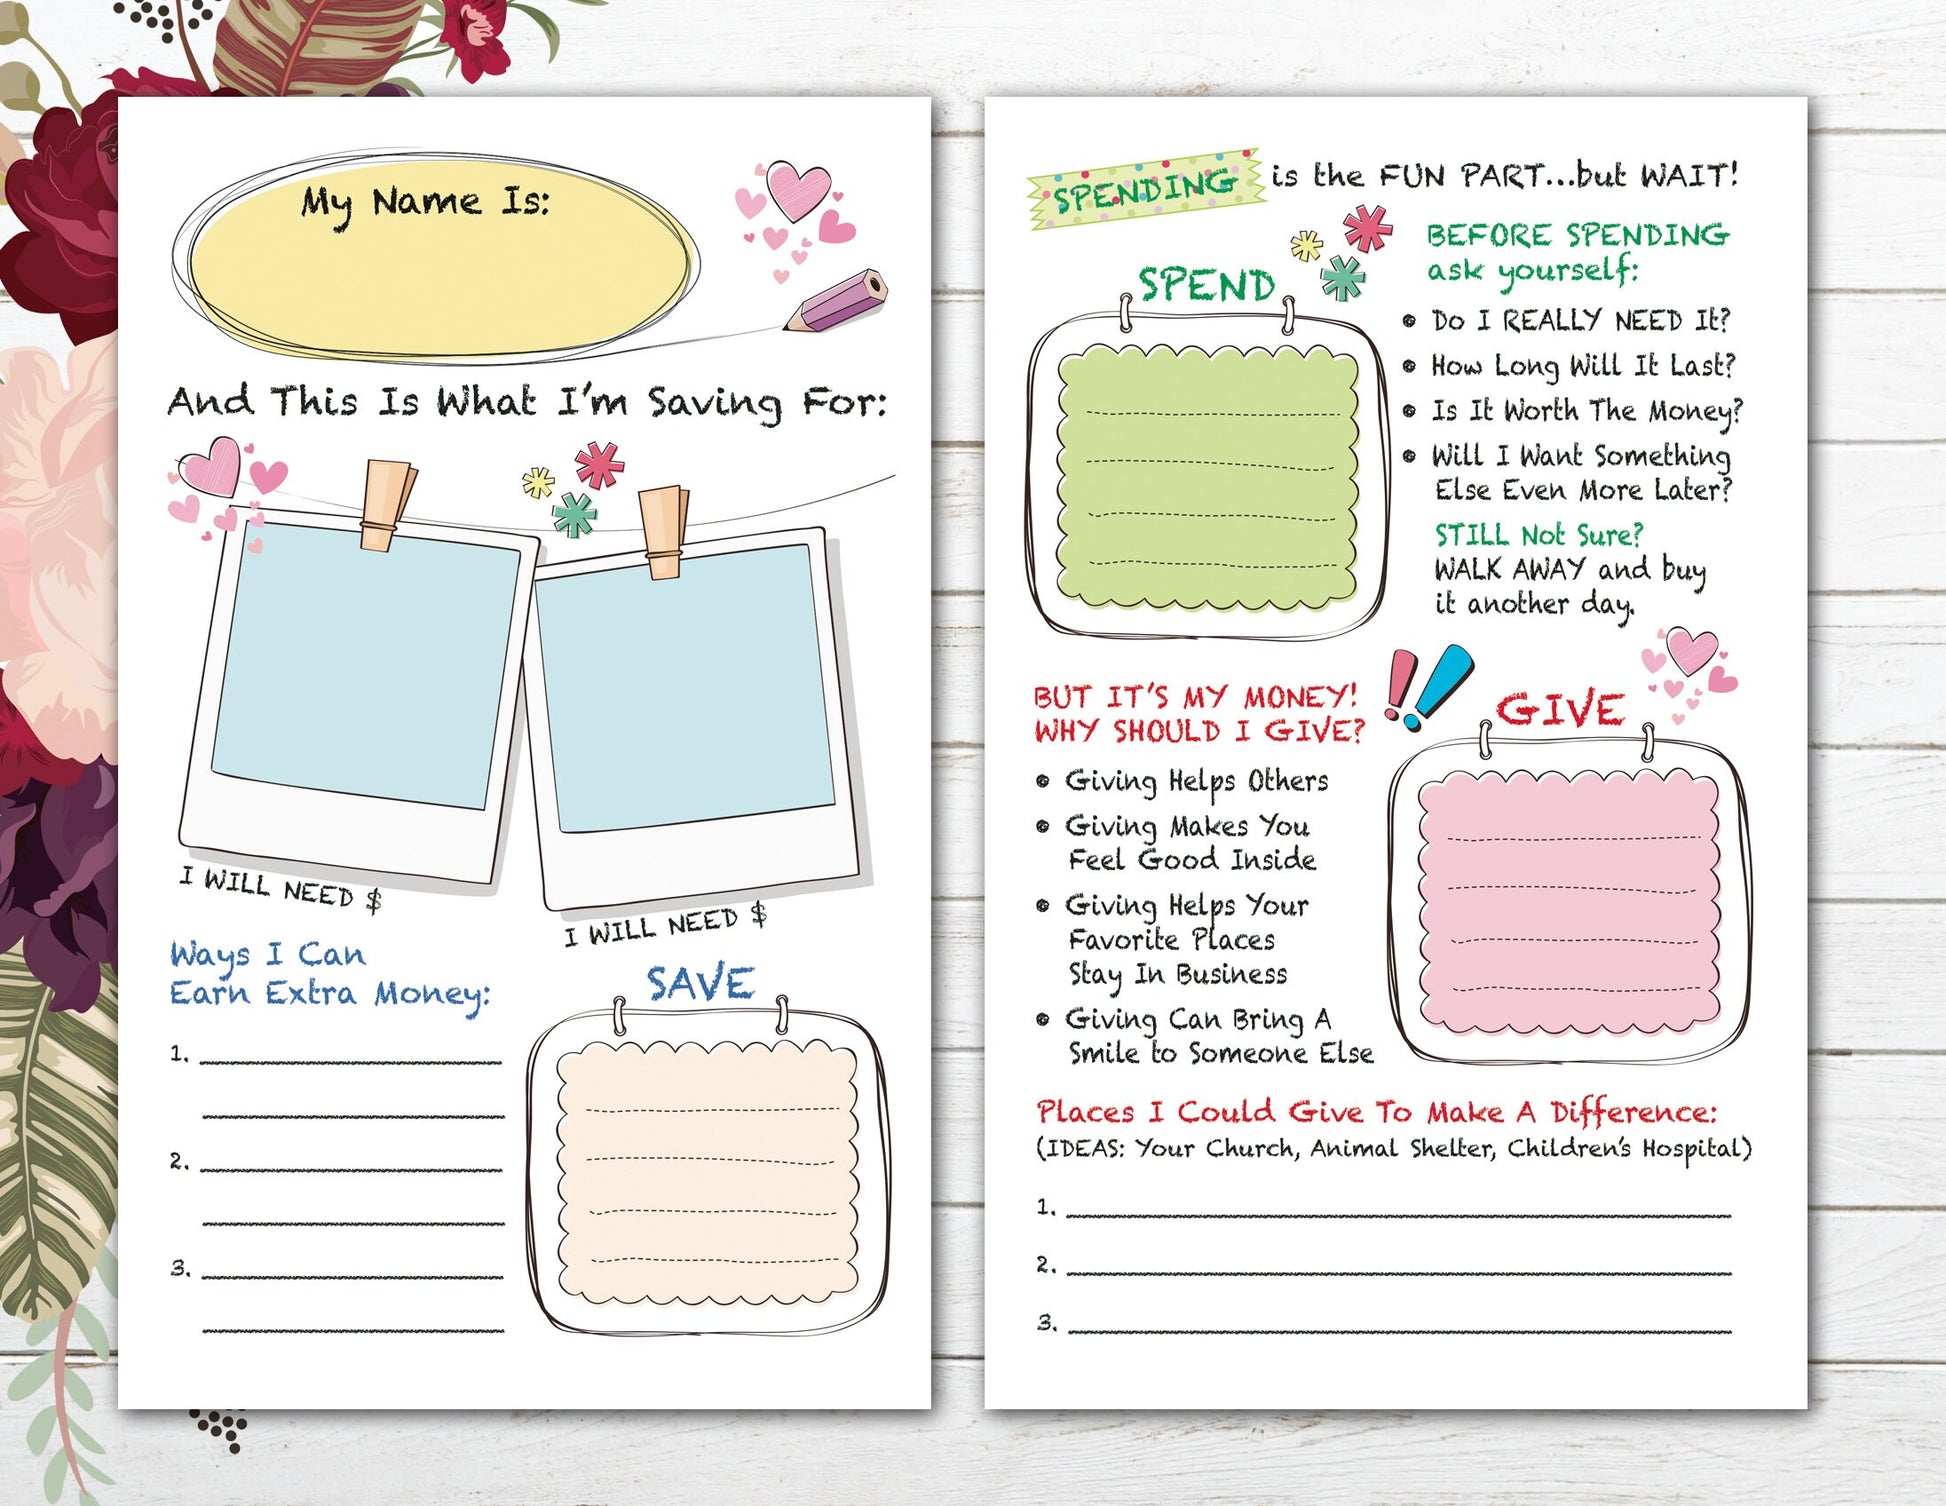 My Name Is:
And This Is What I'm Saving For:
I WILL NEED $
I WILL NEED $
Ways I Can
Earn Extra Money:
1.
2.
3.
SAVE
SPENDING is the FUN PART...but WAIT!
SPEND
BEFORE SPENDING
ask yourself:
• Do I REALLY NEED It?
• How Long Will It Last?
• Is It Worth The Money?
• Will I Want Something
Else Even More Later?
STILL Not Sure?
WALK AWAY and buy
it another day.
BUT IT'S MY MONEY!
WHY SHOULD I GIVE?
• Giving Helps Others
• Giving Makes You
Feel Good Inside
• Giving Helps Your
Favorite Places
Stay In Business
• Giving Can Bring A
Smile to Someone Else
GIVE
Places I Could Give To Make A Difference:
(IDEAS: Your Church, Animal Shelter, Children's Hospital)
1.
2.
3.